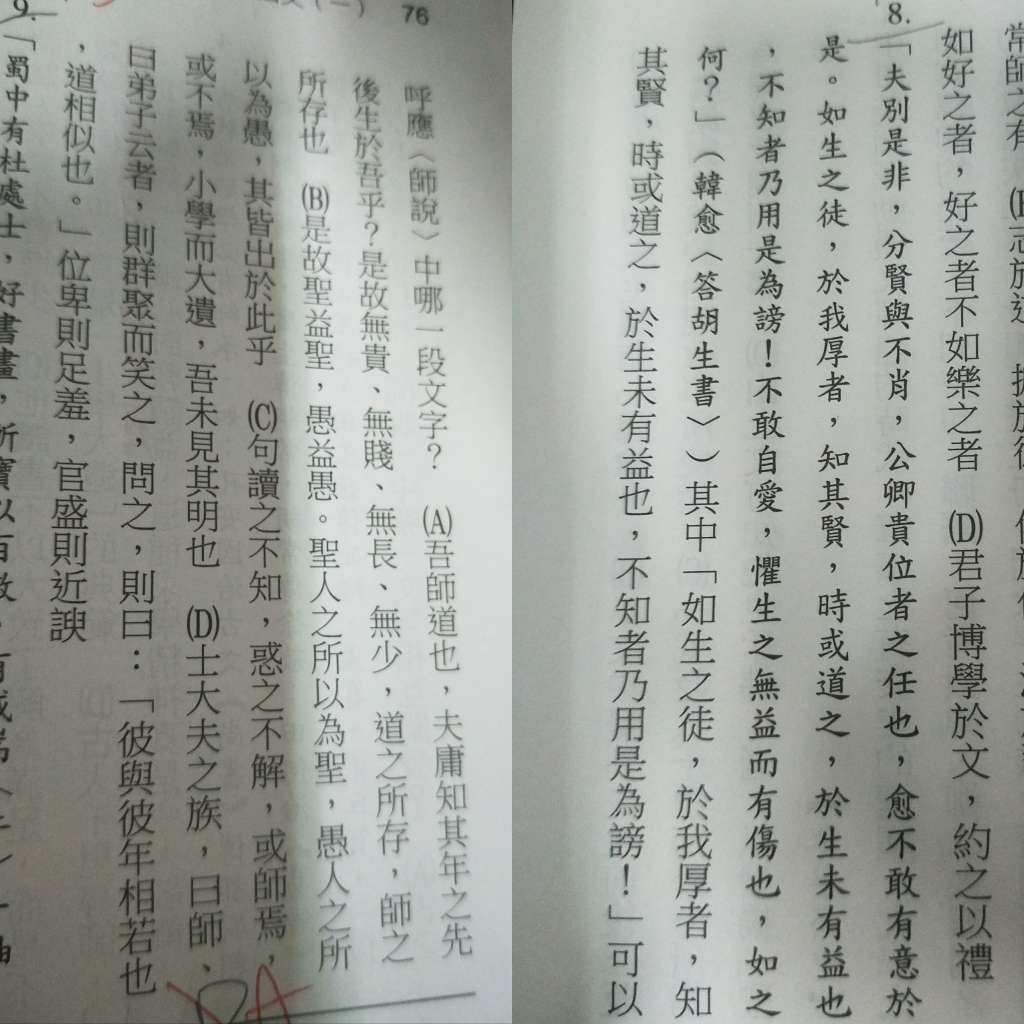 常師之有
如好之者，好之者不如樂之者　(D)君子博學於文，約之以禮
8.「夫別是非，分賢與不肖，公卿貴位者之任也，愈不敢有意於
是。如生之徒，於我厚者，知其賢，時或道之，於生未有益也
，不知者乃用是為謗！不敢自愛，懼生之無益而有傷也，如之
何？」（韓愈〈答胡生書〉）其中「如生之徒，於我厚者，知
其賢，時或道之，於生未有益也，不知者乃用是為謗！」可以
76
呼應〈師說〉中哪一段文字？　(A)吾師道也，夫庸知其年之先
後生於吾乎？是故無貴、無賤、無長、無少，道之所存，師之
所存也　(B)是故聖益聖，愚益愚。聖人之所以為聖，愚人之所
以為愚，其皆出於此乎　(C)句讀之不知，惑之不解，或師焉，
或不焉，小學而大遺，吾未見其明也　(D)士大夫之族，曰師、
曰弟子云者，則群聚而笑之，問之，則曰：「彼與彼年相若也
，道相似也。」位卑則足羞，官盛則近諛
9.「蜀中有杜處士，好書畫，所寶以百數
A